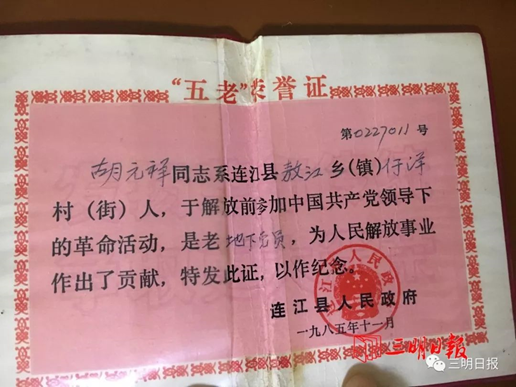 “五老”荣誉证
第0227011号
胡元祥同志系连江县敖江乡(镇)仔洋
村(街)人，于解放前参加中国共产党领导下
的革命活动，是老地下党员，为人民解放事业
作出了贡献，特发此证，以作纪念。
连江县人民政府
一九八五年十一月
三明日报
三明日报